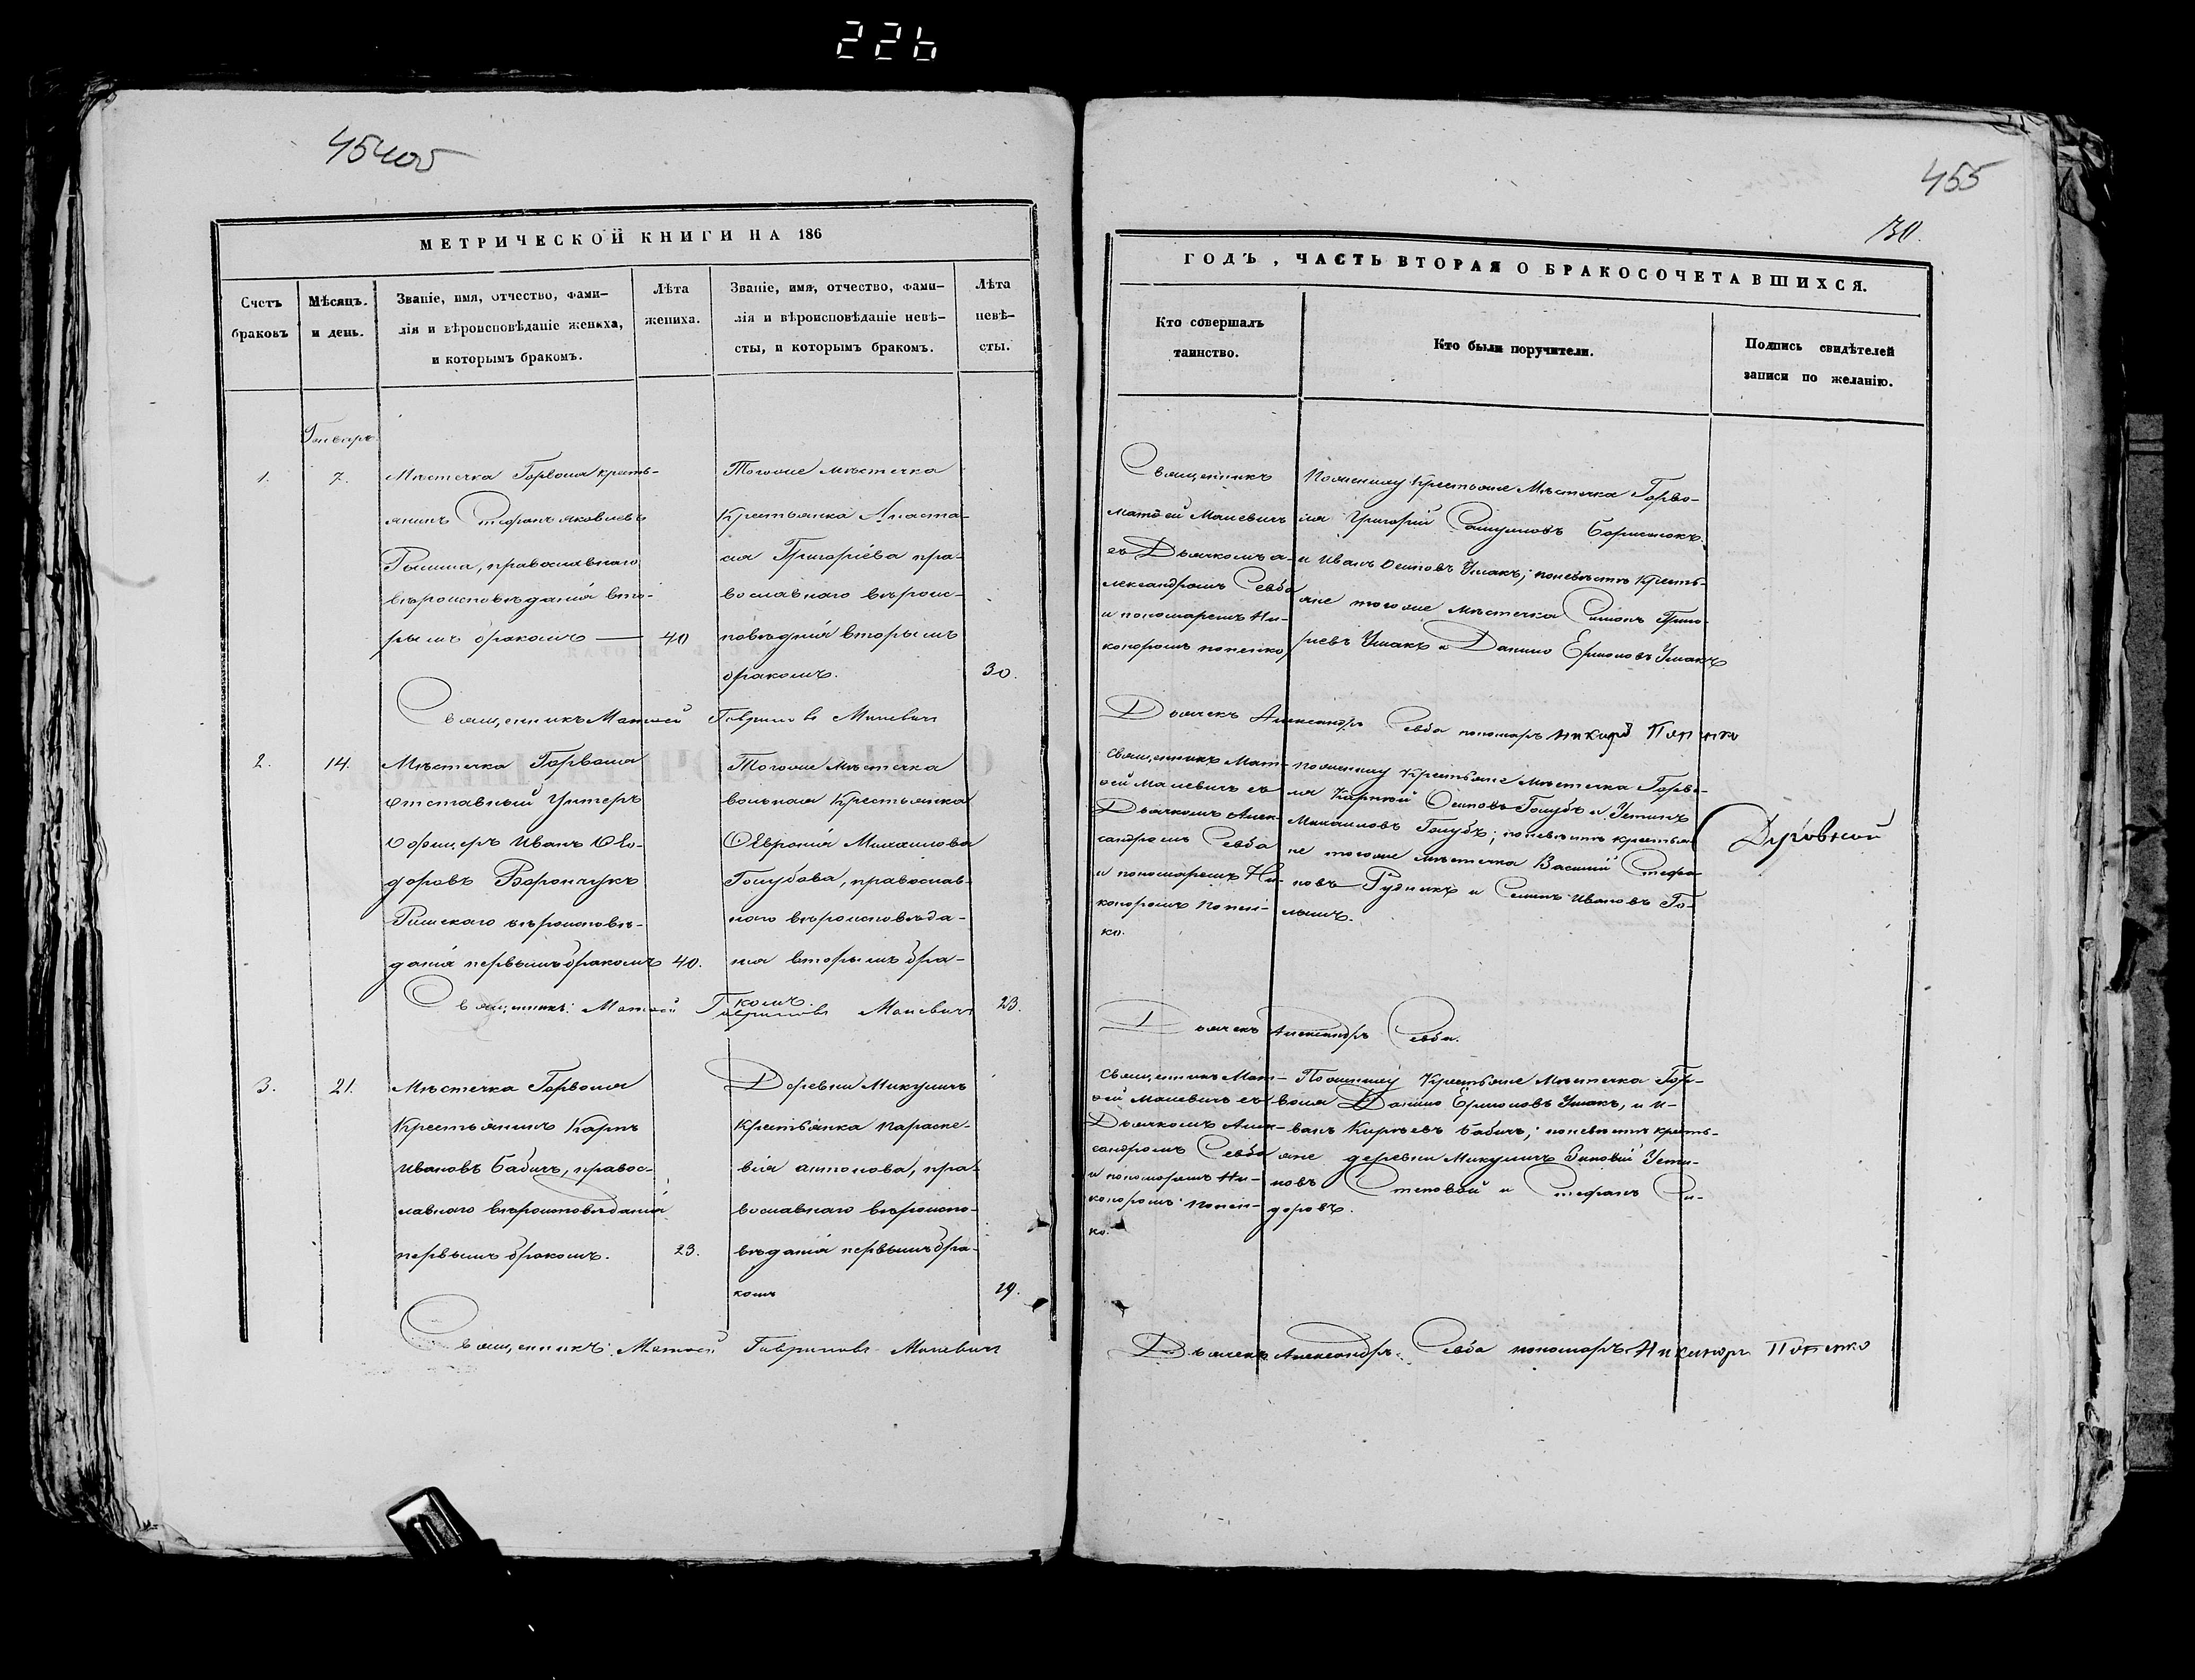 226
45405
МЕТРИЧЕСКОЙ КНИГИ НА 186
Счетъ браковъ
Мѣсяцъ. и день.
Званіе, имя, отчество, фами-
лія и вѣроисповѣданіе жениха,
и которымъ бракомъ.
Лѣта
жениха.
Званіе, имя, отчество, фами-
лія и вѣроисповѣданіе невѣ-
сты, и которымъ бракомъ.
Лѣта
невѣ-
сты.
Январь
1.
7.
Мѣстечка Горволя кресть-
янинъ Стефанъ Яковлевъ
православнаго
вѣроисповѣданія вто-
рымъ бракомъ — 40
Тогоже мѣстечка
крестьянка Анаста-
сія Григоріева пра-
вославнаго вѣроис-
повѣднія вторымъ
бракомъ.
30.
Священникъ Матѳей Гавриловъ Маневичъ
2.
14.
Мѣстечка Горволя
отставный Унтеръ
Офицеръ Иванъ Ѳео-
доровъ Ворончукъ
Римскаго вѣроисповѣ-
данія первымъ бракомъ 40.
Тогоже мѣстечка
вольная крестьянка
Евронія Михаилова
Голубова, православ-
наго вѣроисповѣда-
нія вторымъ бра-
комъ.
23.
Священникъ: Матѳей Гавриловъ Маневичъ
3.
21.
Мѣстечка Горволя
Крестьянинъ Карпъ
Ивановъ Бабичъ, правос-
лавнаго вѣроисповѣданія
первымъ бракомъ. 23.
Деревни Микуличъ
крестьянка Параске-
вія Антонова, пра-
вославнаго вѣроиспо-
вѣданія первымъ бра-
комъ
19.
Священникъ: Матѳей Гавриловъ Маневичъ
455
130.
ГОДЪ, ЧАСТЬ ВТОРАЯ О БРАКОСОЧЕТАВШИХСЯ.
Кто совершалъ
таинство.
Кто были поручители.
Подпись свидѣтелей
записи по желанію.
Священникъ
Матѳей Маневичъ
съ Дьячкомъ А-
лександромъ Севба
и пономаремъ Ни-
коноромъ Попенко
Пожениху Крестьяне Мѣстечка Горво-
ля Григорій Борисенокъ
и Иванъ Осиповъ Ушакъ; поневѣстѣ кресть-
яне тогоже мѣстечка Симонъ Григо-
риевъ Ушакъ и Данило Ермоловъ Ушакъ
Дьячекъ Александръ Севба пономарь Никаноръ Попенко
Священникъ Мат-
ѳей Маневичъ съ
Дьячкомъ Алек-
сандромъ Севба
и пономаремъ Ни-
коноромъ Попен-
ко.
Пожениху Крестьяне Мѣстечка Горво-
ля Осиповъ Голубъ и Устинъ
Михаиловъ Голубъ; поневѣстѣ крестья
не тогоже мѣстечка Василій Стефа
новъ Рудникъ и Семенъ Ивановъ Го-
Дьячекъ Александръ Севба.
Священникъ Мат-
ѳей Маневичъ съ
Дьячкомъ Алек-
сандромъ Севба
и пономаремъ Ни-
коноромъ Попен-
ко.
Пожениху Крестьяне Мѣстечка Гор-
воля Данило Ермоловъ Ушакъ, и И-
ванъ Кирѣевъ Бабичъ; поневѣстѣ кресть-
яне деревни Микуличъ Зиновій Усти-
новъ Степовой и Стефанъ Си-
доровъ.
Дьячекъ Александръ Севба пономарь Никаноръ Попенко